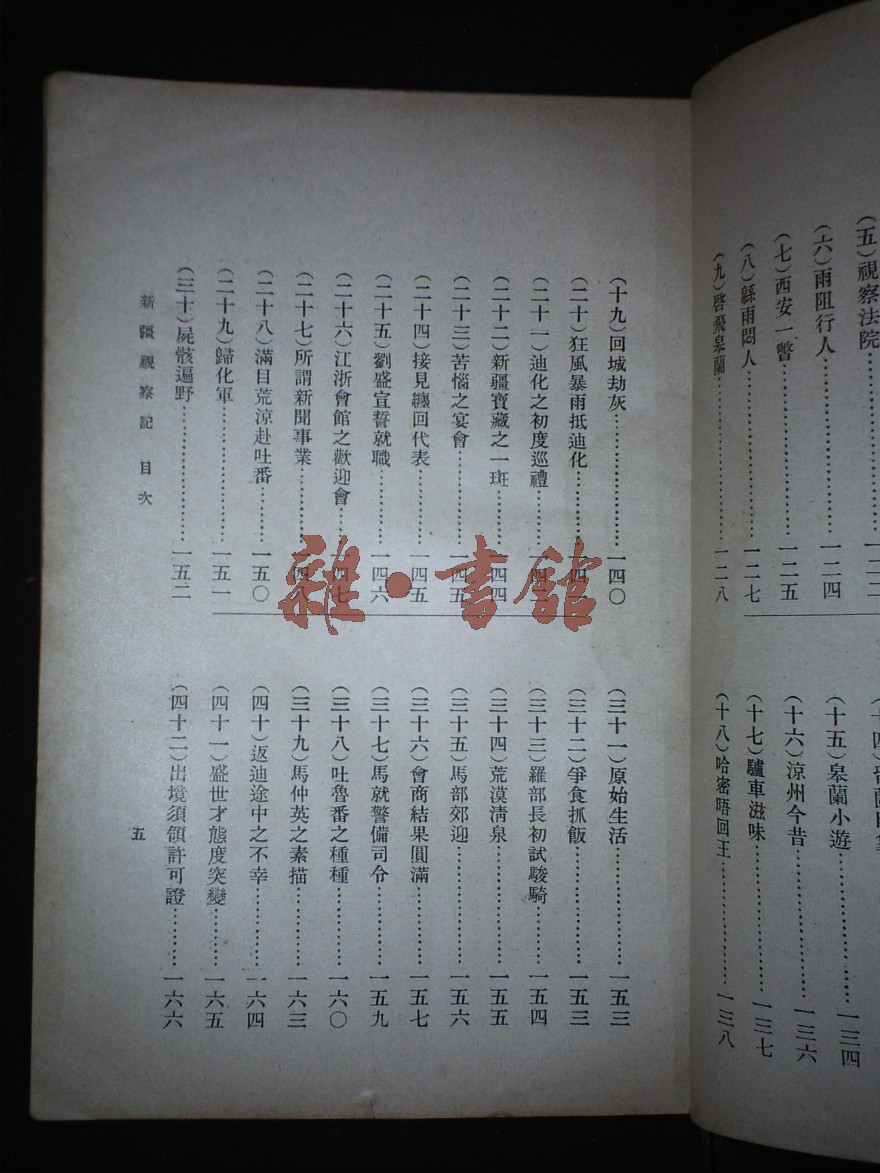 (五)視察法院……………一二二
(六)雨阻行人……………一二四
(七)西安一瞥……………一二五
(八)緜雨悶人……………一二七
(九)啓飛皋蘭……………一二八
(十五)皋蘭小遊……………一三四
(十六)涼州今昔……………一三六
(十七)驢車滋味……………一三七
(十八)哈密晤回王……………一三八
(十九)回城劫灰……………一四〇
(二十)狂風暴雨抵迪化……………一四一
(二十一)迪化之初度巡禮……………一四二
(二十二)新疆寶藏之一斑……………一四四
(二十三)苦惱之宴會……………一四五
(二十四)接見纏回代表……………一四五
(二十五)劉盛宣誓就職……………一四六
(二十六)江浙會館之歡迎會……………一四七
(二十七)所謂新聞事業……………一四八
(二十八)滿目荒涼赴吐番……………一五〇
(二十九)歸化軍……………一五一
(三十)屍骸遍野……………一五二
(三十一)原始生活……………一五三
(三十二)爭食抓飯……………一五三
(三十三)羅部長初試駿騎……………一五四
(三十四)荒漠淸泉……………一五五
(三十五)馬部郊迎……………一五六
(三十六)會商結果圓滿……………一五七
(三十七)馬就警備司令……………一五九
(三十八)吐魯番之種種……………一六〇
(三十九)馬仲英之素描……………一六三
(四十)返迪途中之不幸……………一六四
(四十一)盛世才態度突變……………一六五
(四十二)出境須領許可證……………一六六
新疆視察記 目次
五
雜·書館